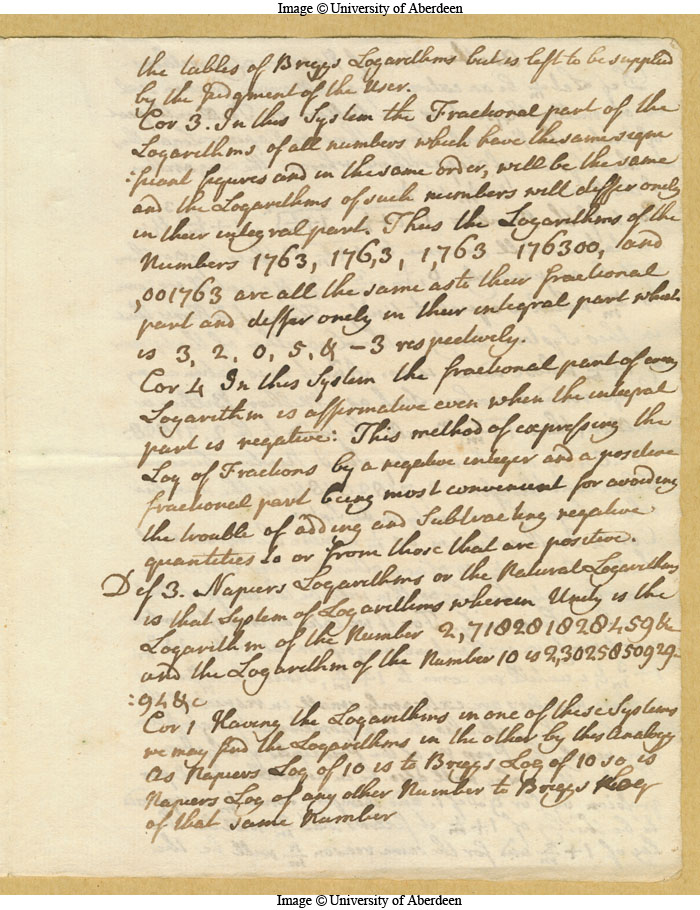 Image © University of Aberdeen
the tables of Briggs Logarithms but is left to be supplied
by the Judgment of the User.
Cor 3. In this System the Fractional part of the
Logarithms of all numbers which have the same signi
:ficant figures and in the same order, will be the same
and the Logarithms of such numbers will differ onely
in their integral part. Thus the Logarithms of the
Numbers 1763, 176,3, 1,763 176300, and
,001763 are all the same as to their fractional
part and differ onely in their integral part which
is 3, 2, 0, 5, & -3 respectively.
Cor 4 In this System the fractional part of every
Logarithm is affirmative even when the integral
part is negative: This method of expressing the
Log of Fractions by a negative integer and a positive
fractional part being most convenient for avoiding
the trouble of adding and Subtracting negative
quantities to or from those that are positive.
Def 3. Napiers Logarithms or the Natural Logarithms
is that System of Logarithms wherein Unity is the
Logarithm of the Number 2,718281828459&c
and the Logarithm of the Number 10 is 2,3025850929
:94&c
Cor 1 Having the Logarithms in one of these Systems
we may find the Logarithms in the other by this Analogy
As Napiers Log of 10 is to Briggs Log of 10 so is
Napiers Log of any other Number to Briggs Log
of that same Number
Image © University of Aberdeen